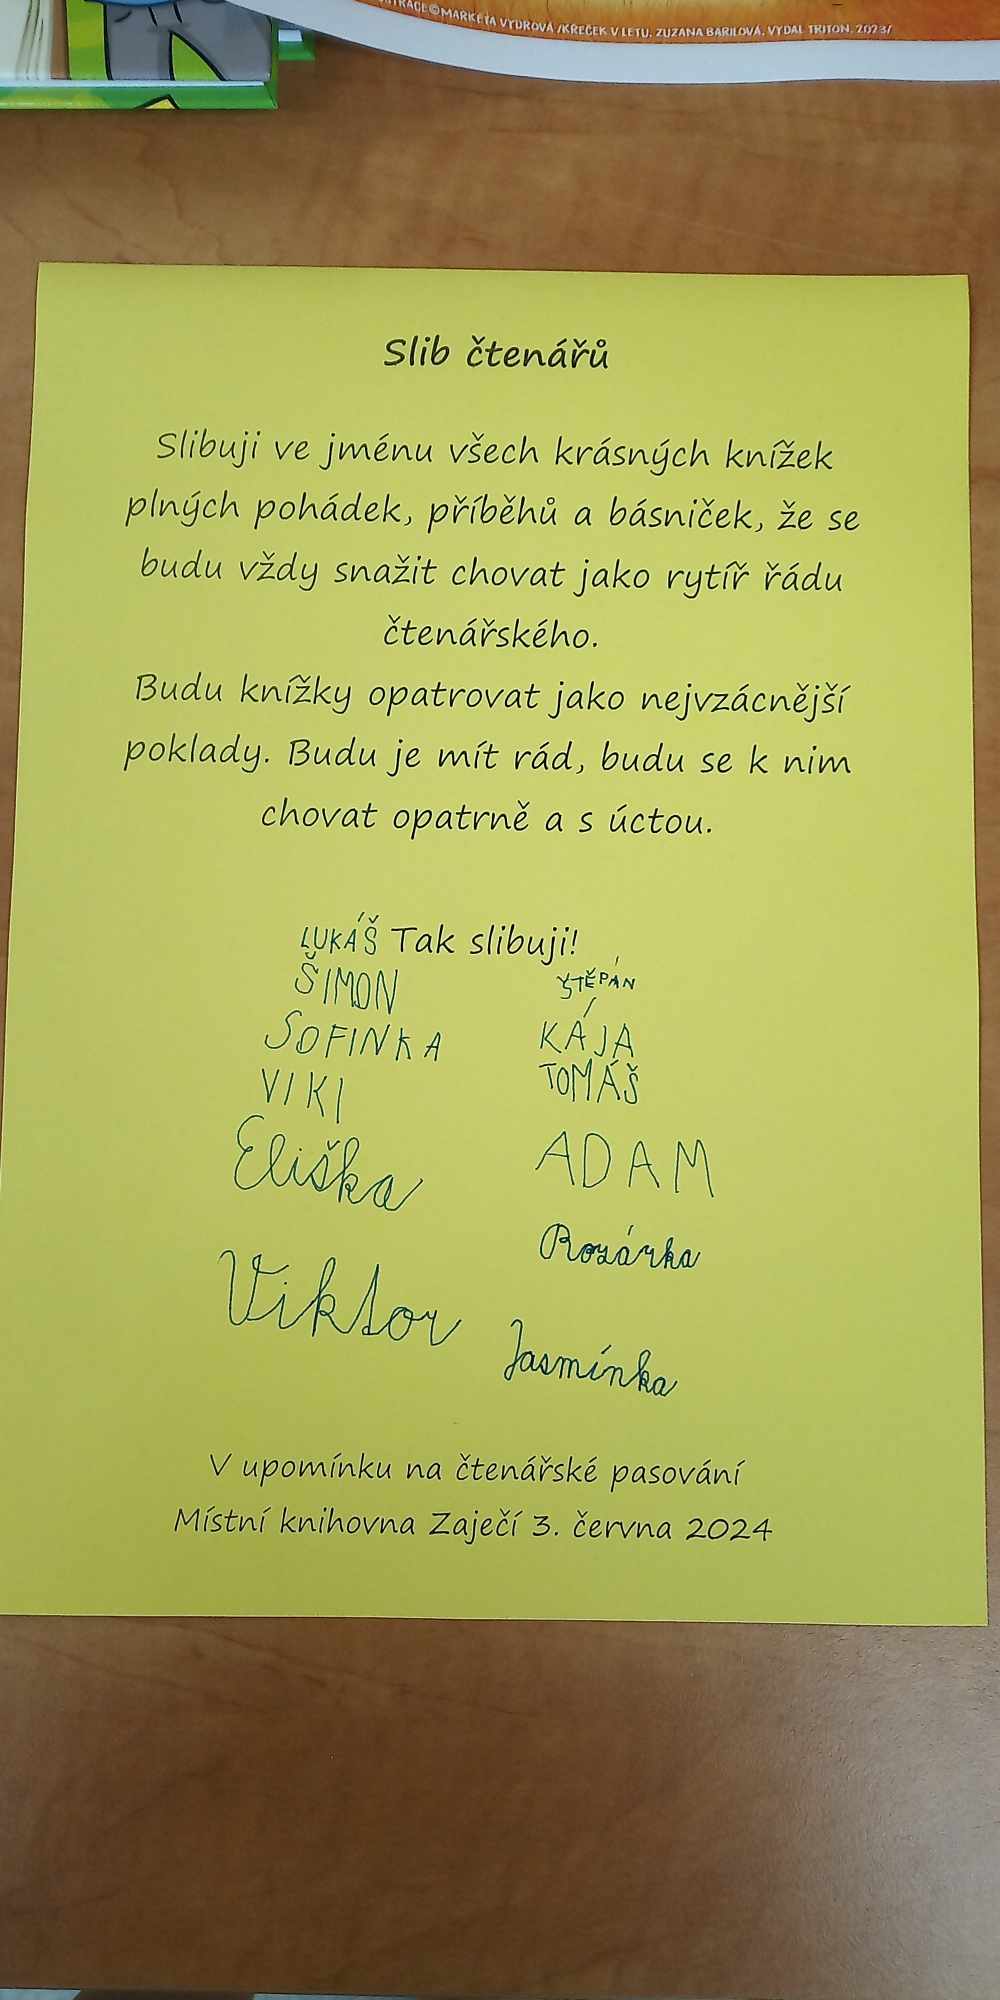 ©MARKÉTA VYDROVÁ /KŘEČEK V LÉTU, ZUZANA BARILOVÁ, VYDAL TRITON, 2023/
Slib čtenářů
Slibuji ve jménu všech krásných knížek
plných pohádek, příběhů a básniček, že se
budu vždy snažit chovat jako rytíř řádu
čtenářského.
Budu knížky opatrovat jako nejvzácnější
poklady. Budu je mít rád, budu se k nim
chovat opatrně a s úctou.
LUKÁŠ Tak slibuji!
ŠIMON ŠTĚPÁN
SOFINKA KÁJA
VIKI TOMÁŠ
Eliška ADAM
Rozárka
Viktor
Jasmínka
V upomínku na čtenářské pasování
Místní knihovna Zaječí 3. června 2024